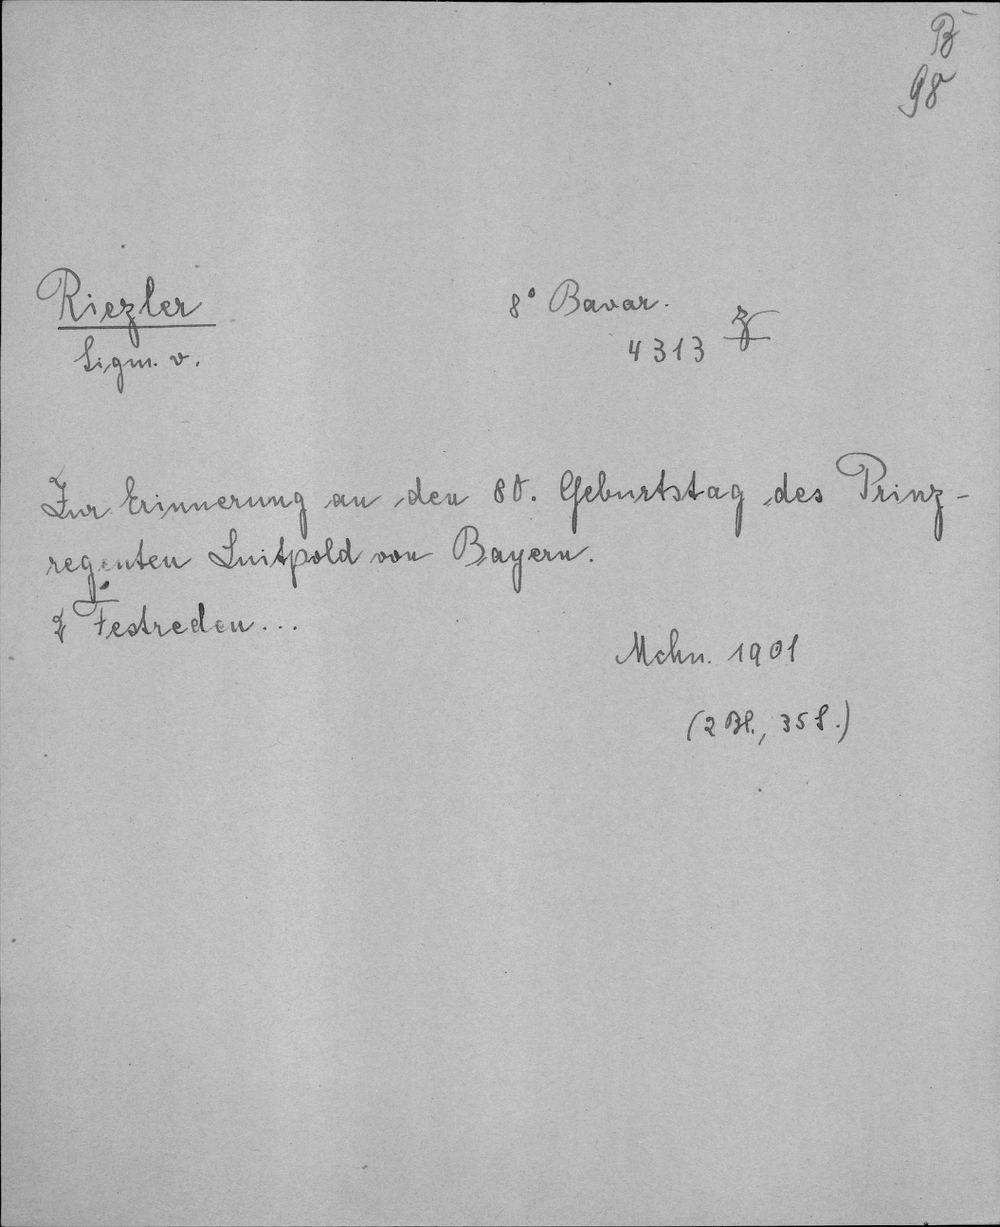 B
98
Riezler
Sigm. v.
8° Bavar.
4313 z
Zur Erinnerung an den 80. Geburtstag des Prinz-
regenten Luitpold von Bayern.
2 Festreden...
Mchn. 1901
(2 Bl., 35 S.)